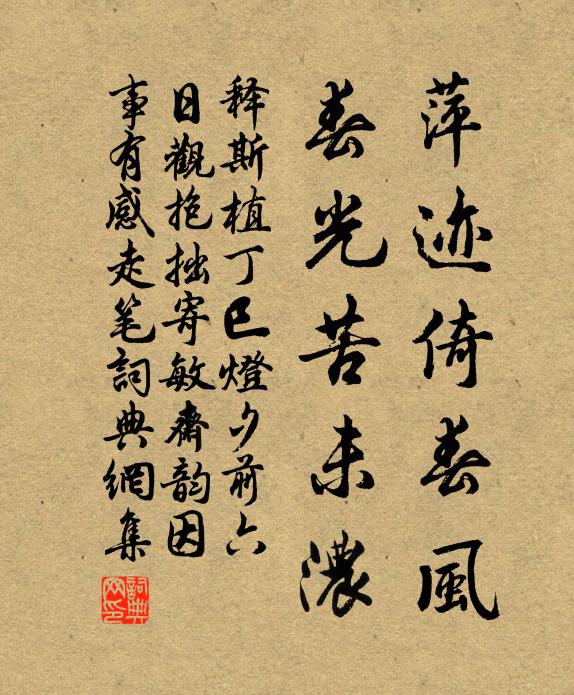 萍迹倚春風
春光苦未濃
释斯植丁巳燈夕前六
日觀抱拙寄敏齋韵因
事有感走笔詞典網集
詞典
网印